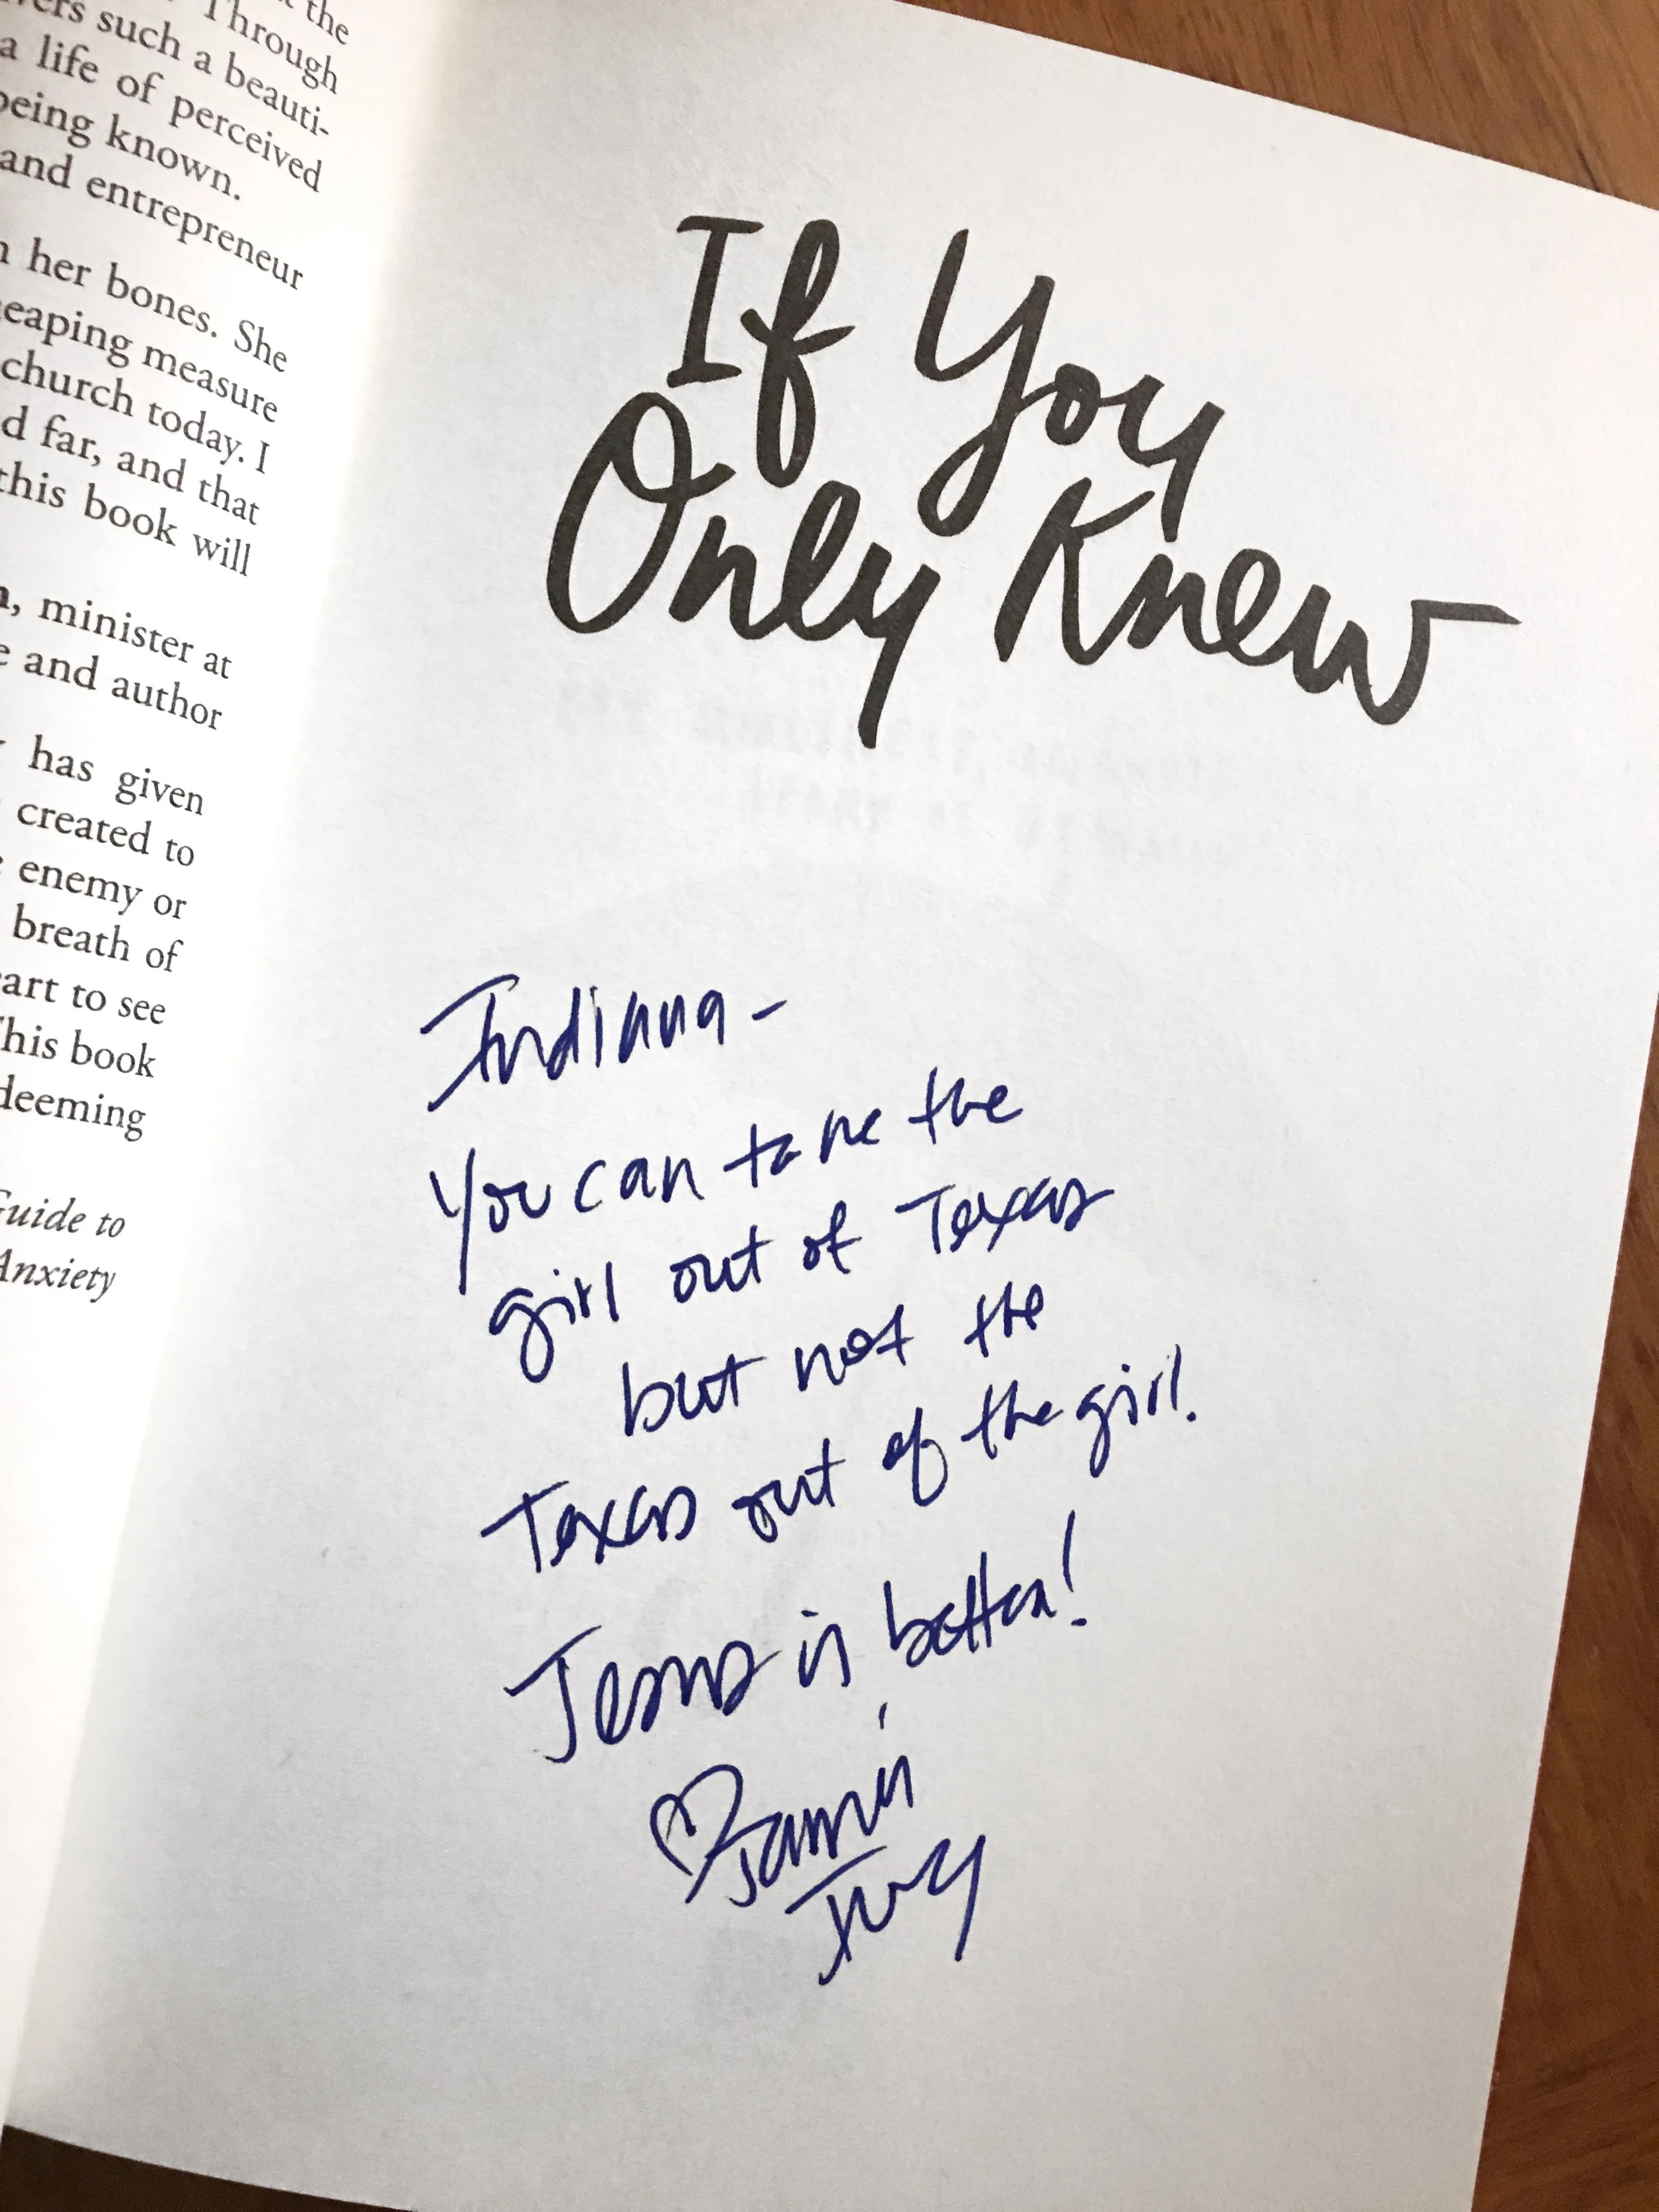 the
Through
vers such a beauti-
a life of perceived
being known.
and entrepreneur
her bones. She
heaping measure
church today. I
d far, and that
this book will
, minister at
and author
has given
created to
enemy or
breath of
art to see
his book
deeming
Guide to
Anxiety
If You
Only Knew
Indiana-
You can take the
girl out of Texas
but not the
Texas out of the girl.
Jesus is better!
♡ Jamie
Ivey